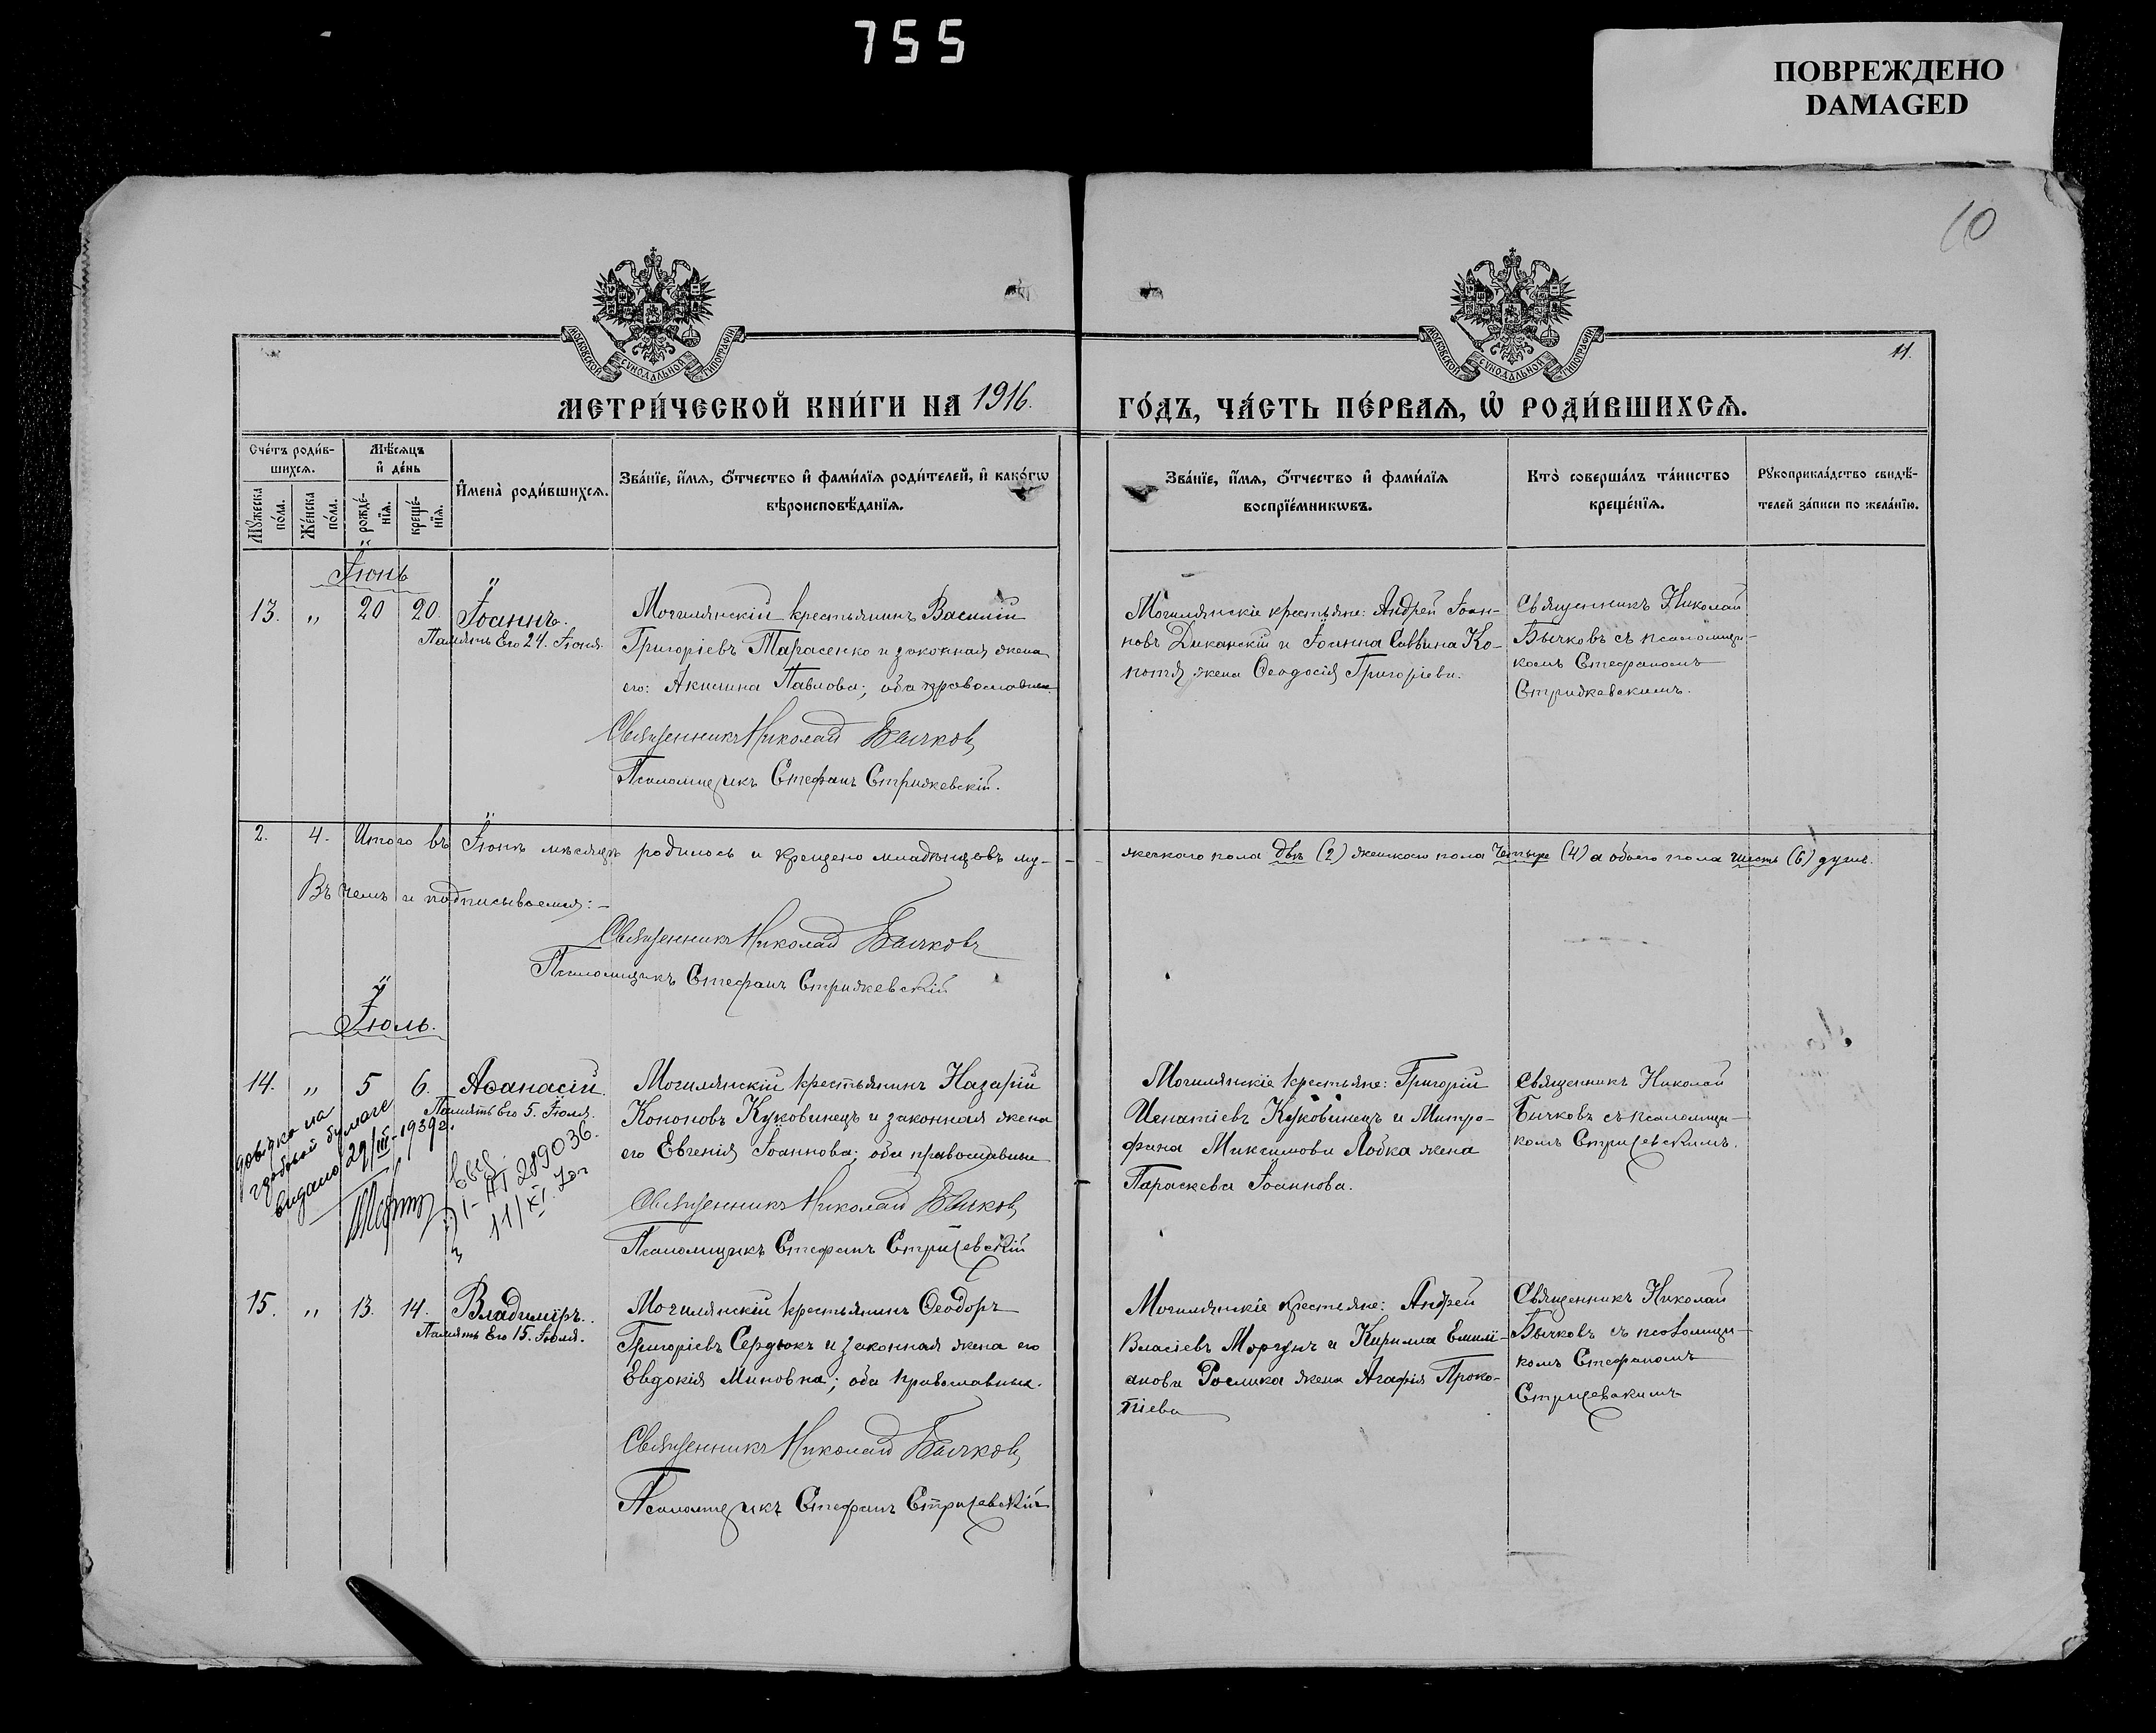 755
ПОВРЕЖДЕНО
DAMAGED
10
МОСКОВСКОЙ СУНОДАЛЬНОЙ ТИПОГРАФІИ
МОСКОВСКОЙ СУНОДАЛЬНОЙ ТИПОГРАФІИ
11.
МЕТРИ́ЧЕСКОЙ КНИ́ГИ НА 1916.
ГО́ДЪ, ЧА́СТЬ ПЕ́РВАѦ, Ѡ РОДИ́ВШИХСѦ.
Сче́тъ роди́в-
шихсѧ.
Мѣ́сѧцъ
и҆ де́нь
Мꙋ́жеска
по́ла.
Же́нска
по́ла.
рожде́-
нїѧ.
креще́-
нїѧ.
И҆мена̀ роди́вшихсѧ.
Зва́нїе, и҆́мѧ, ѻ҆́тчество и҆ фами́лїѧ роди́телей, и҆ како́гѡ
вѣроисповѣ́данїѧ.
Зва́нїе, и҆́мѧ, ѻ҆́тчество и҆ фами́лїѧ
воспрїе́мникѡвъ.
Кто̀ соверша́лъ та́инство
креще́нїѧ.
Рꙋкоприкла́дство свидѣ́-
телей за́писи по жела́нїю.
Іюнь
13. „ 20 20. Іоаннъ.
Память Его 24. Іюня.
Могилянскій крестьянинъ Василій
Григоріевъ Тарасенко и законная жена
его: Акилина Павлова; оба православные
Священникъ Николай Бычковъ
Псаломщикъ Стефанъ Стрижевскій.
Могилянскіе крестьяне: Андрей Іоан-
новъ Диканскій и Іоанна Саввина Ко-
нотя жена Ѳеодосія Григоріева.
Священникъ Николай
Бычковъ съ псаломщи-
комъ Стефаномъ
Стрижевскимъ.
2. 4. Итого въ Іюнѣ мѣсяцѣ родилось и крещено младенцевъ му-
жескаго пола двѣ (2) женскаго пола четыре (4) а обоего пола шесть (6) душъ.
Въ чемъ и подписываемся: –
Священникъ Николай Бычковъ
Псаломщикъ Стефанъ Стрижевскій
Іюль.
14. „ 5 6. Аѳанасій.
Память Его 5. Іюля.
довідка на
гербовой бумаге
видано 29/III-1939г.
I-АП 289036.
11/XI.
Могилянскій крестьянинъ Назарій
Кононовъ Куковинецъ и законная жена
его Евгенія Іоаннова; оба православные
Священникъ Николай Бычковъ
Псаломщикъ Стефанъ Стрижевскій
Могилянскіе крестьяне: Григорій
Игнатіевъ Куковинецъ и Митро-
фана Максимова Лобка жена
Параскева Іоаннова.
Священникъ Николай
Бычковъ съ псаломщи-
комъ Стрижевскимъ.
15. „ 13. 14. Владиміръ.
Память Его 15. Іюля.
Могилянскій крестьянинъ Ѳеодоръ
Григоріевъ Сердюкъ и законная жена его
Евдокія Миновна; оба православныя.
Священникъ Николай Бычковъ
Псаломщикъ Стефанъ Стрижевскій
Могилянскіе крестьяне: Андрей
Власіевъ Моргунъ и Кирилла Емилі-
анова жена Агафія Проко-
піева
Священникъ Николай
Бычковъ съ псаломщи-
комъ Стефаномъ
Стрижевскимъ